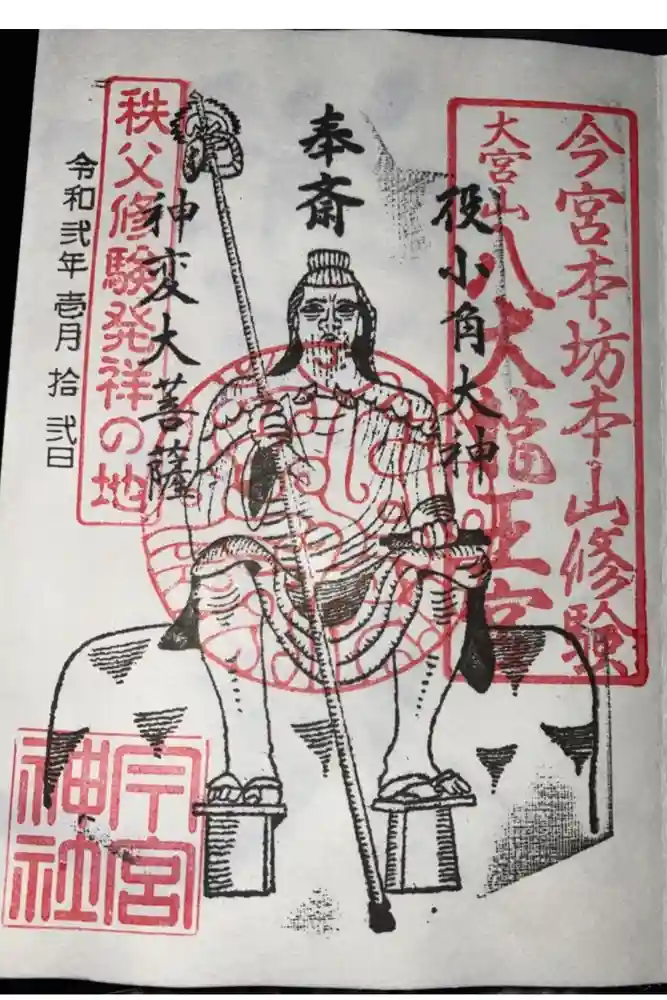 今宮本坊本山修験
大宮山
八大龍王宮
役小角大神
奉斎
神変大菩薩
秩父修験発祥の地
令和弐年壱月拾弐日
今宮
神社